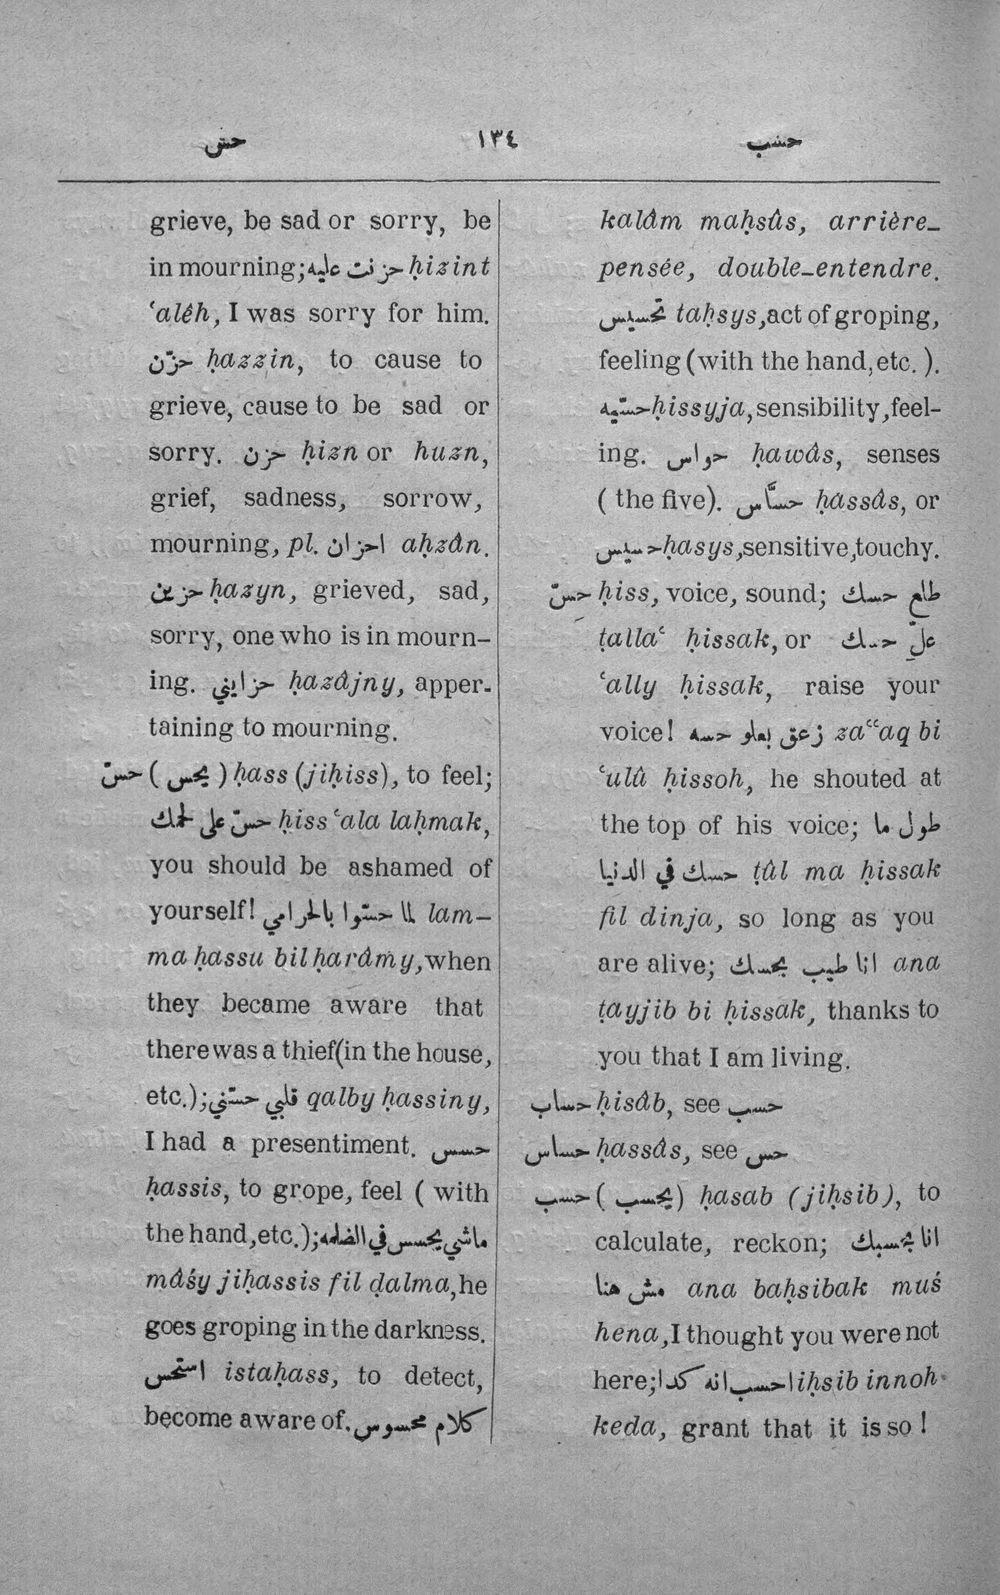 حش ١٣٤ حسب
grieve, be sad or sorry, be
in mourning; حزنت عليه ḥizint
ʿalêh, I was sorry for him.
حزّن ḥazzin, to cause to
grieve, cause to be sad or
sorry. حزن ḥizn or huzn,
grief, sadness, sorrow,
mourning, pl. احزان aḥzân.
حزين ḥazyn, grieved, sad,
sorry, one who is in mourn-
ing. حزايني ḥazâjny, apper-
taining to mourning.
حسّ ( يحس ) ḥass (jiḥiss), to feel;
حسّ على لحمك ḥiss ʿala laḥmak,
you should be ashamed of
yourself! لما حسّوا بالحرامي lam-
ma ḥassu bil ḥarâmy, when
they became aware that
there was a thief (in the house,
etc.); قلبي حسّني qalby ḥassiny,
I had a presentiment. حسس
ḥassis, to grope, feel ( with
the hand, etc.); ماشي يحسس في الضلمه
mâśy jiḥassis fil ḍalma, he
goes groping in the darkness.
استحس istaḥass, to detect,
become aware of. كلام محسوس
kalâm maḥsûs, arrière-
pensée, double-entendre.
تحسيس taḥsys, act of groping,
feeling (with the hand, etc. ).
حسّيه ḥissyja, sensibility, feel-
ing. حواس ḥawâs, senses
( the five). حسَّاس ḥassâs, or
حسيس ḥasys, sensitive, touchy.
حِسّ ḥiss, voice, sound; طلع حسك
ṭallaʿ ḥissak, or علِّ حسك
ʿally ḥissak, raise your
voice! زعق بعلو حسه zaʿʿaq bi
ʿulû ḥissoh, he shouted at
the top of his voice; طول ما
حسك في الدنيا ṭûl ma ḥissak
fil dinja, so long as you
are alive; انا طيب بحسك ana
ṭayjib bi ḥissak, thanks to
you that I am living.
حساب ḥisâb, see حسب
حساس ḥassâs, see حس
حسب ( يحسب ) ḥasab (jiḥsib), to
calculate, reckon; انا بحسبك
مش هنا ana baḥsibak muś
hena, I thought you were not
here; احسب انه كدا iḥsib innoh
keda, grant that it is so !